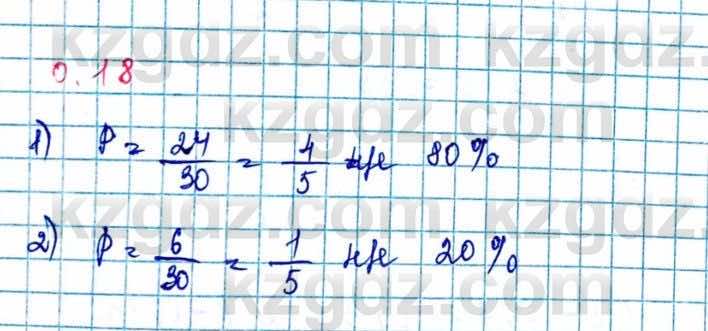 kzgdz.com kzgdz.com
0.18
kzgdz.com
1) P = 24/30 = 4/5 не 80%
kzgdz.com kzgdz.com
2) P = 6/30 = 1/5 не 20%
kzgdz.com